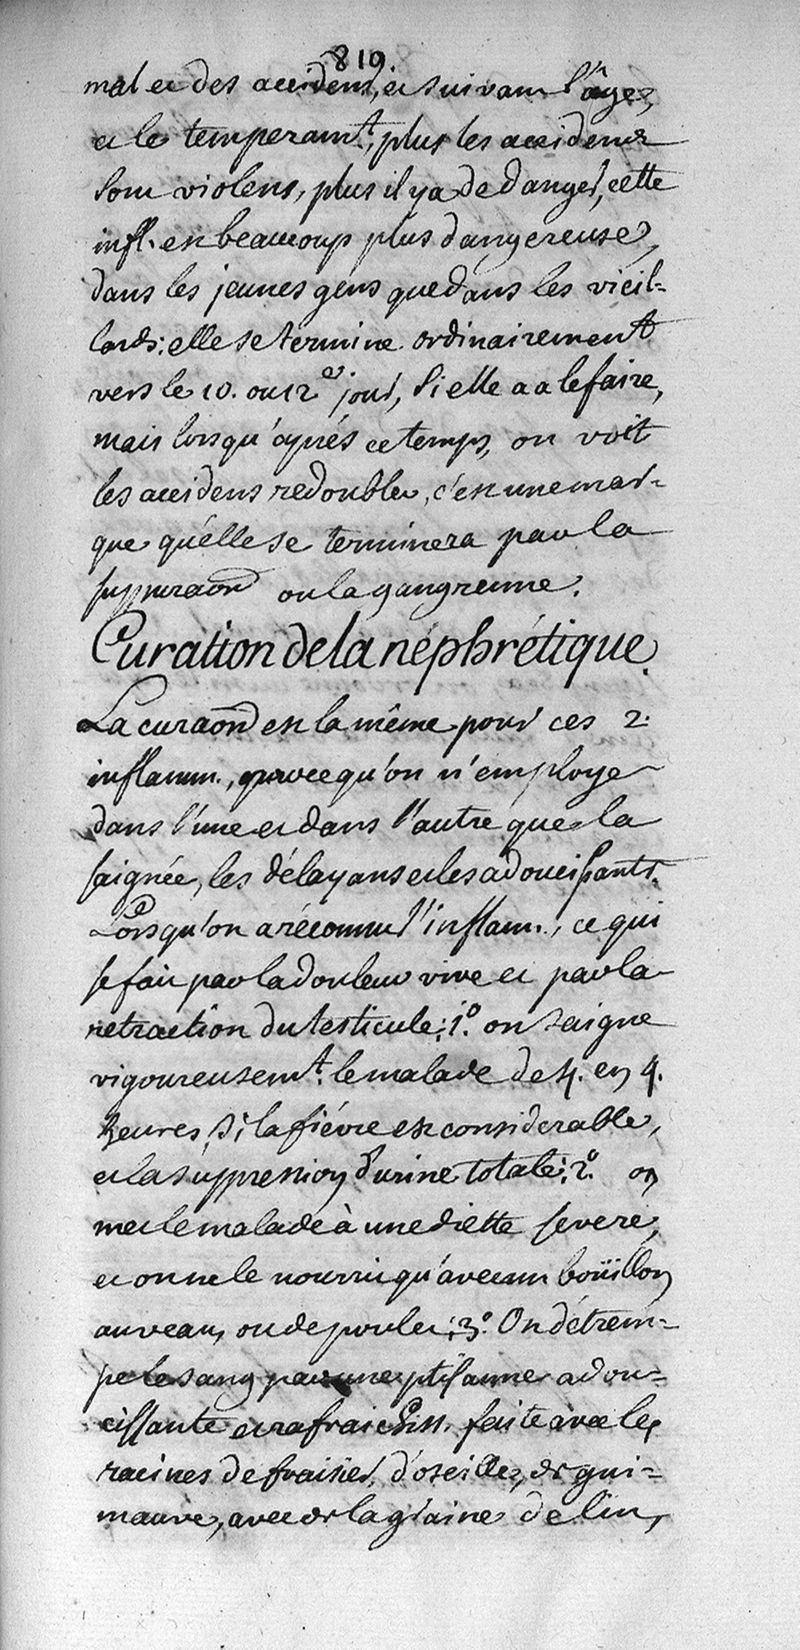 819.
mal et des accidens, et suivant l'âge,
et le temperamt., plus les accidens
sont violens, plus il y a de danger, cette
infl. est beaucoup plus dangereuse,
dans les jeunes gens que dans les vieil=
lards: elle se termine ordinairement
vers le 10. ou 12e jour, si elle a a le faire,
mais lorsqu'après ce temps, on voit
les accidens redoubler, c'est une mar=
que qu'élle se terminera par la
suppuraon ou la gangrenne.
Curation de la néphrétique.
La curaon est la même pour ces 2.
inflamm., parce qu'on n'employe
dans l'une et dans l'autre que la
saignée, les délayans et les adoucissants.
Lorsqu'on a réconnu l'inflam., ce qui
se fait par la douleur vive et par la
retraction du testicule: 1.o on saigne
vigoureusemt. le malade de 4. en 4.
heures, si la fiévre est considerable,
et la suppression d'urine totale: 2.o on
met le malade à une diette severe,
et on ne le nourrit qu'avec un boüillon
au veau, ou de poulet; 3.o On détrem=
pe le sang par une ptisanne adou=
cissante et rafraichiss. faite avec les
racines de fraisier, d'oseille, de gui=
mauve, avec de la graine de lin,